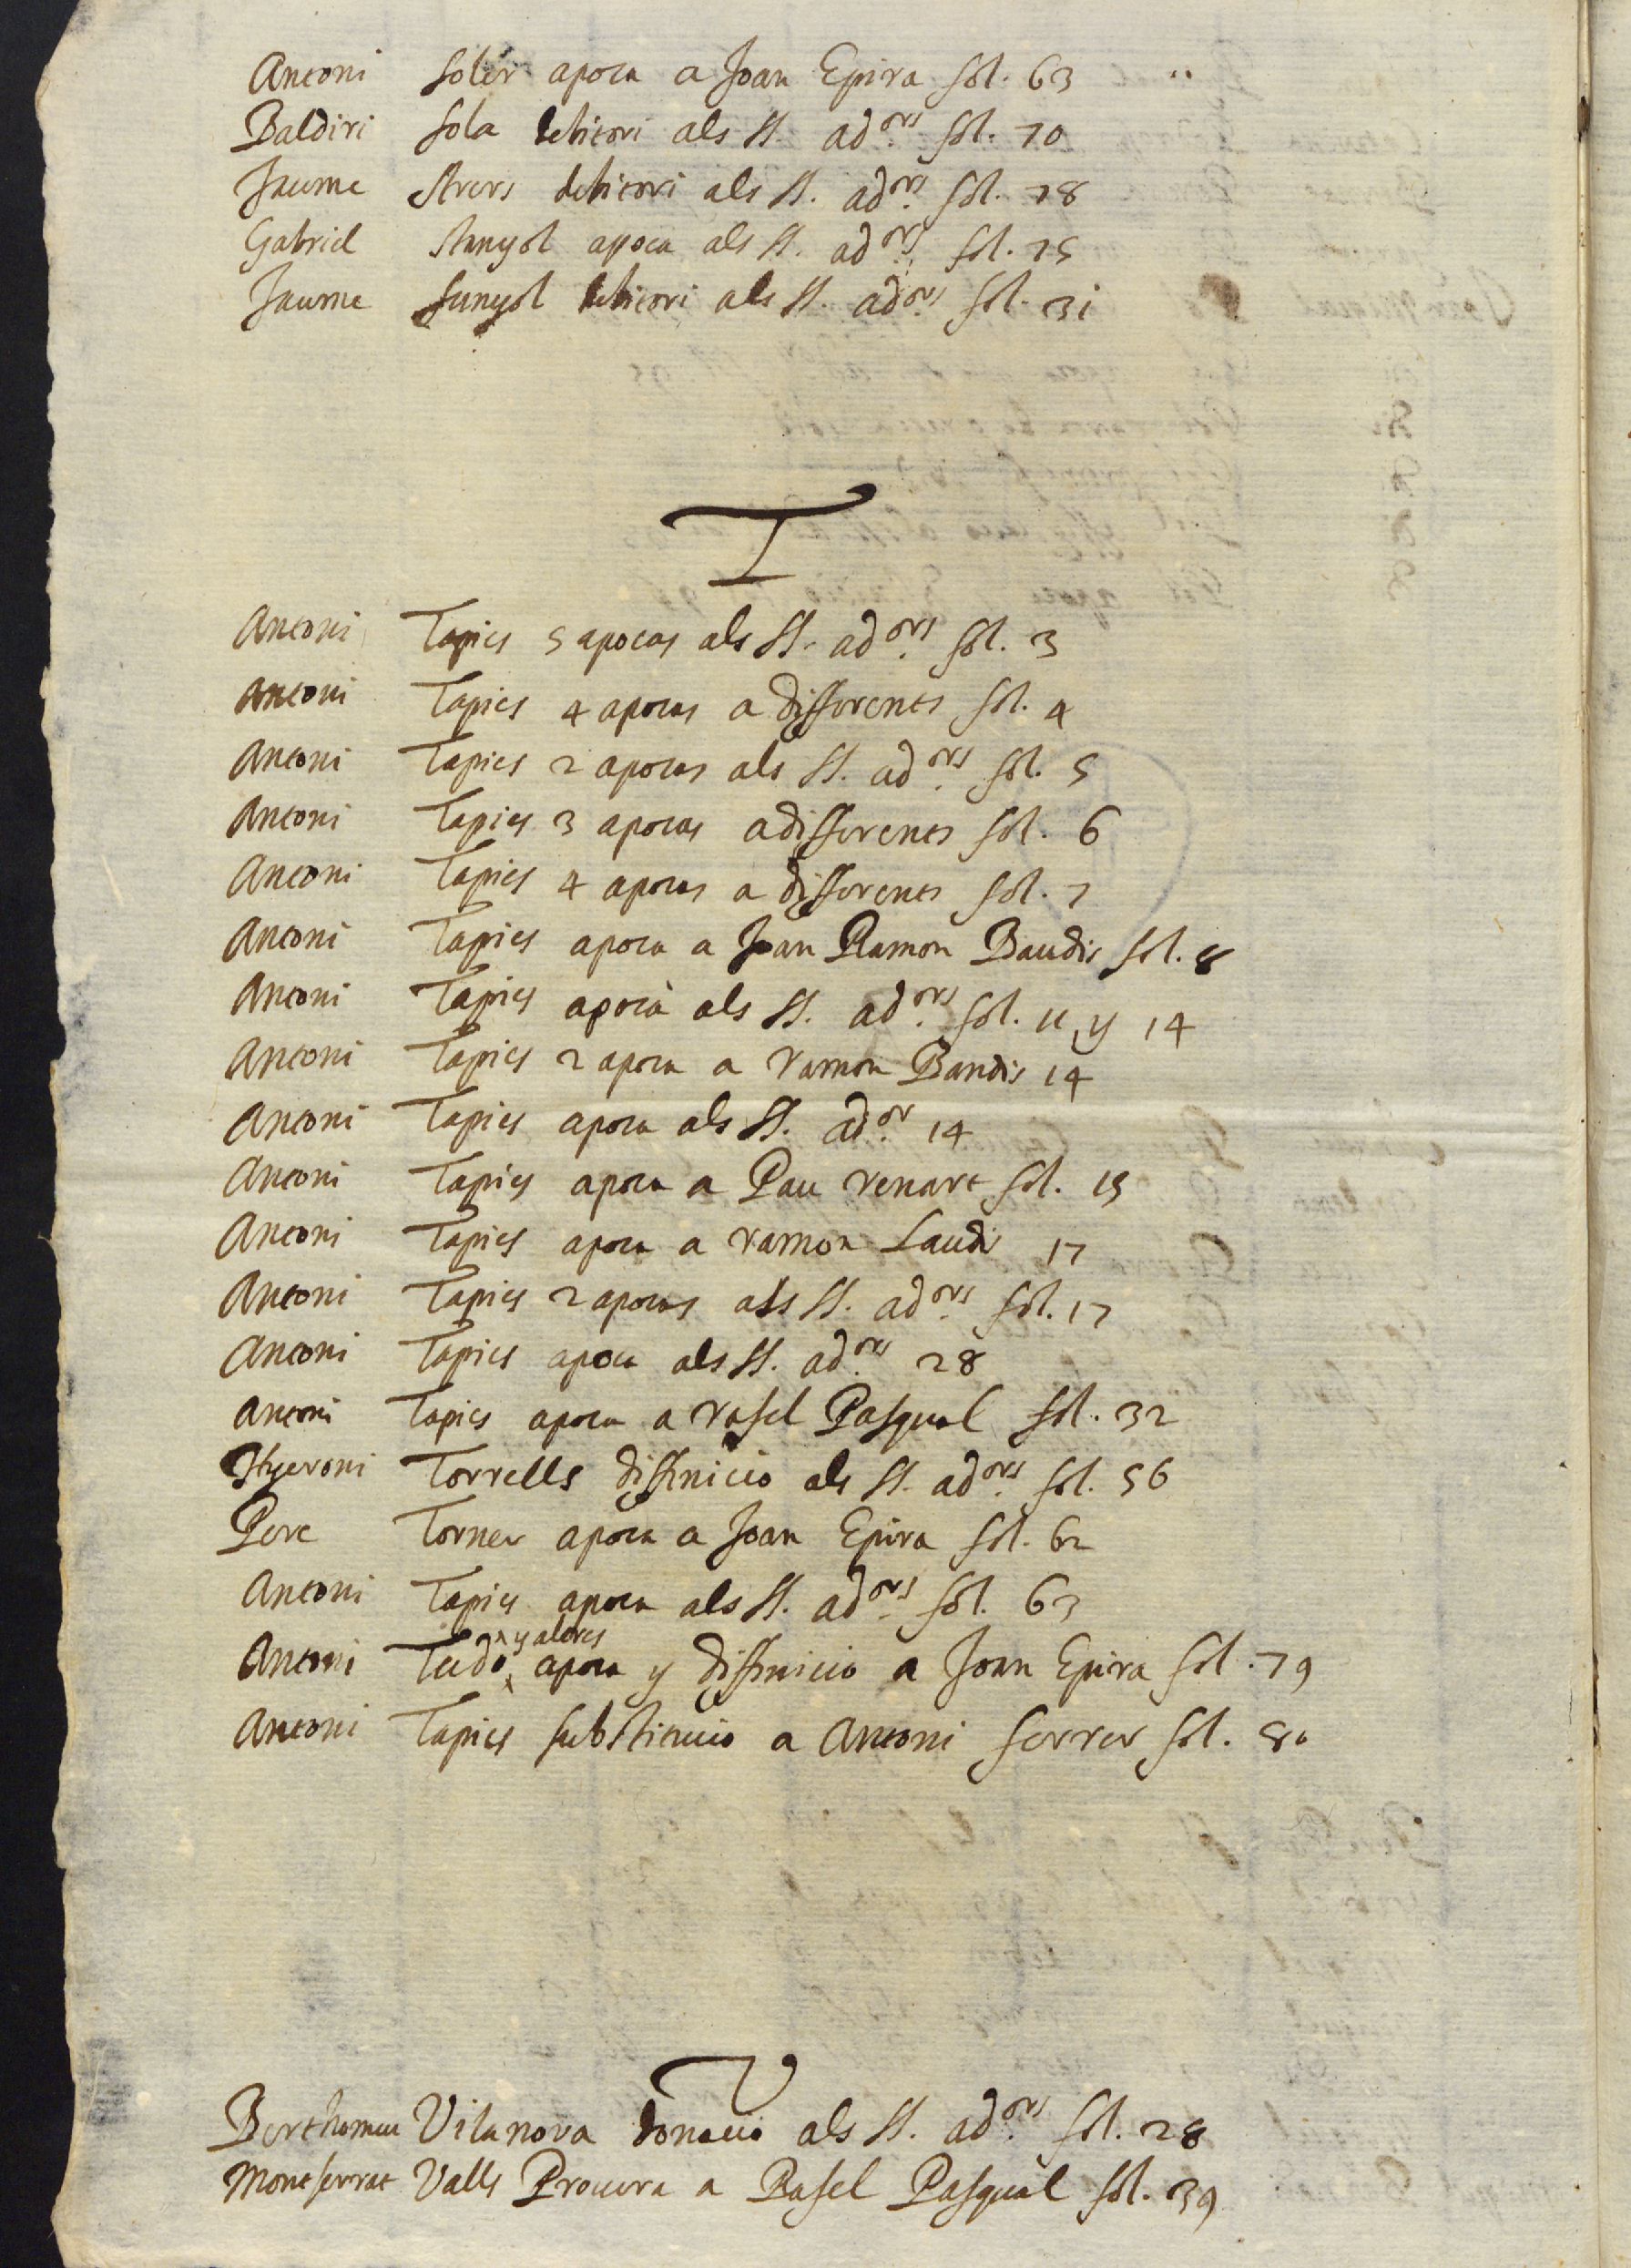 Antoni Soler apoca a Joan Epira fol. 63
Baldiri Sola debitori als SS. ad.ors fol. 70
Jaume Strers debitori als SS. ad.ors fol. 78
Gabriel Stanyol apoca als SS. ad.ors fol. 75
Jaume Sunyol debitori als SS. ad.ors fol. 31
T
Antoni Tapies 5 apocas als SS. ad.ors fol. 3
Antoni Tapies 4 apocas a differents fol. 4
Antoni Tapies 2 apocas als SS. ad.ors fol. 5
Antoni Tapies 3 apocas a differents fol. 6
Antoni Tapies 4 apocas a differents fol. 7
Antoni Tapies apoca a Joan Ramon Baudis fol. 8
Antoni Tapies apoca als SS. ad.ors fol. 11 y 14
Antoni Tapies 2 apoca a ramon Baudis 14
Antoni Tapies apoca als SS. ad.or 14
Antoni Tapies apoca a Pau renart fol. 15
Antoni Tapies apoca a ramon Laudis 17
Antoni Tapies 2 apocas als SS. ad.ors fol. 17
Antoni Tapies apoca als SS. ad.ors 28
Antoni Tapies apoca a rafel Pasqual fol. 32
Hyeroni Torrells diffinicio als SS. ad.ors fol. 56
Pere Torner apoca a Joan Epira fol. 62
Antoni Tapies apoca als SS. ad.ors fol. 63
y altres
Antoni Tudo apoca y diffinicio a Joan Epira fol. 79
Antoni Tapies substitucio a Antoni ferrer fol. 80
V
Berthomeu Vilanova donacio als SS. ad.ors fol. 28
Montserrat Valls Procura a Rafel Pasqual fol. 39